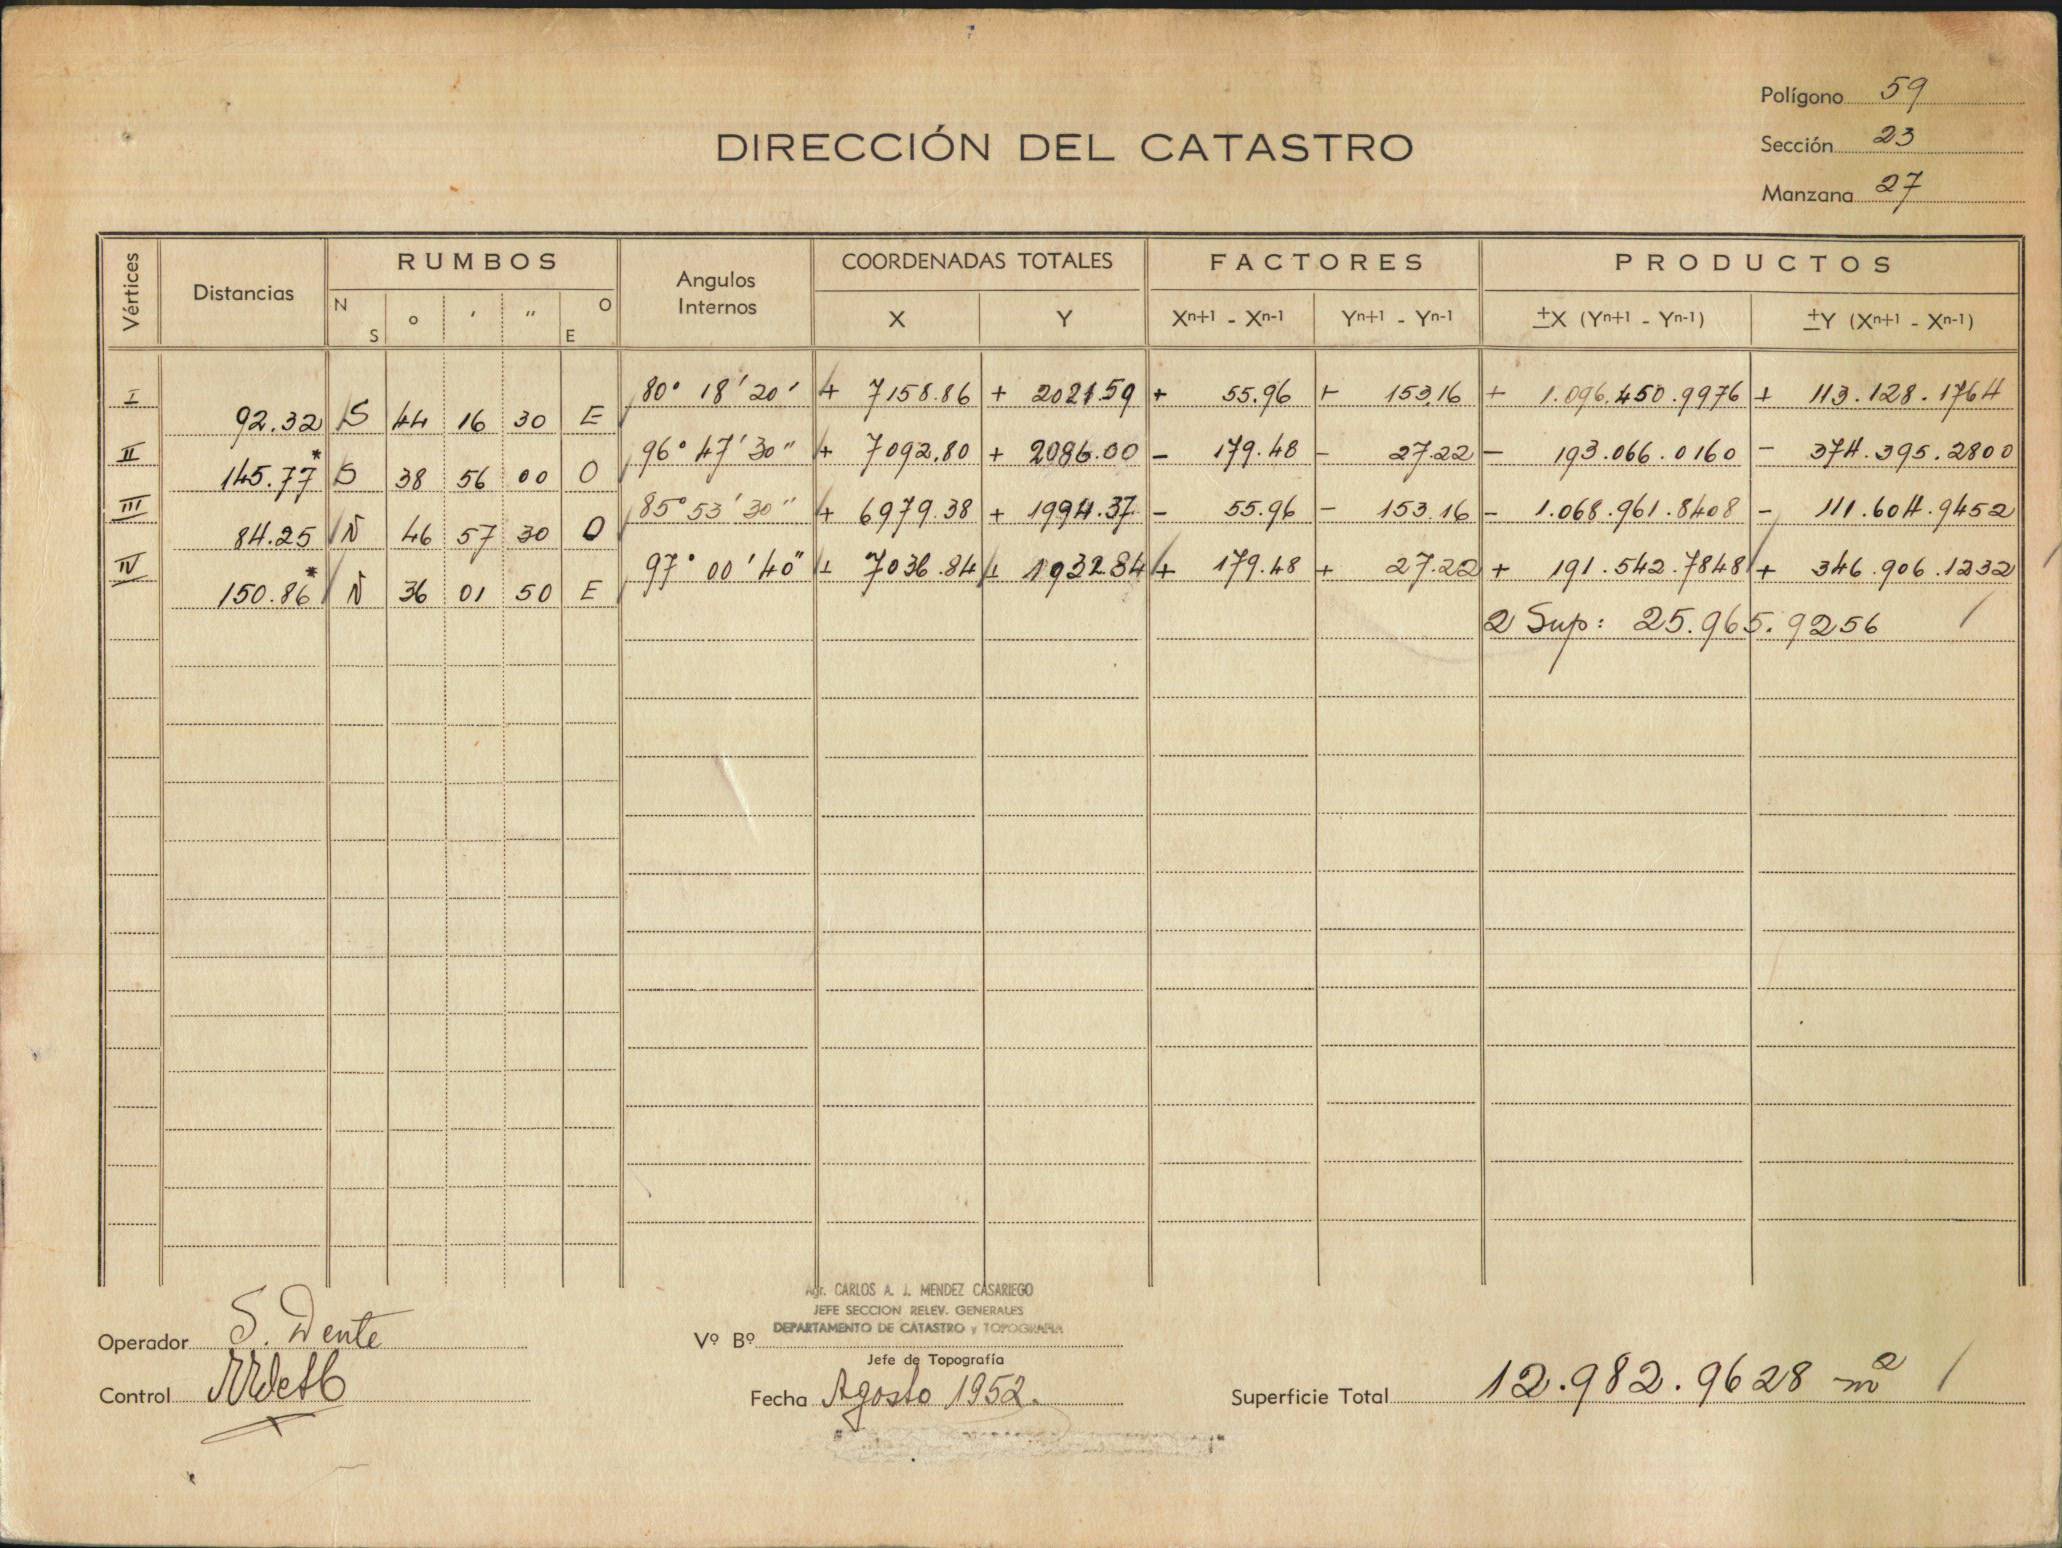 Polígono 59
DIRECCIÓN DEL CATASTRO
Sección 23
Manzana 27
Vértices Distancias RUMBOS Angulos Internos COORDENADAS TOTALES FACTORES PRODUCTOS
N S o ′ ″ O E X Y Xn+1 - Xn-1 Yn+1 - Yn-1 ±X (Yn+1 - Yn-1) ±Y (Xn+1 - Xn-1)
I 80° 18′ 20′ + 7158.86 + 2021.59 + 55.96 + 153.16 + 1.096.450.9976 + 113.128.1764
92.32 S 44 16 30 E
II 96° 47′ 30″ + 7092.80 + 2086.00 - 179.48 - 27.22 - 193.066.0160 - 374.395.2800
145.77* S 38 56 00 O
III 85° 53′ 30″ + 6979.38 + 1994.37 - 55.96 - 153.16 - 1.068.961.8408 - 111.604.9452
84.25 N 46 57 30 O
IV 97° 00′ 40″ + 7036.84 + 1932.84 + 179.48 + 27.22 + 191.542.7848 + 346.906.1232
150.86* N 36 01 50 E
2 Sup: 25.965.9256
Agr. CARLOS A. J. MENDEZ CASARIEGO
JEFE SECCION RELEV. GENERALES
DEPARTAMENTO DE CATASTRO y TOPOGRAFIA
Operador S. Dente Vº Bº
Jefe de Topografía
Control Fecha Agosto 1952. Superficie Total 12.982.9628 m2